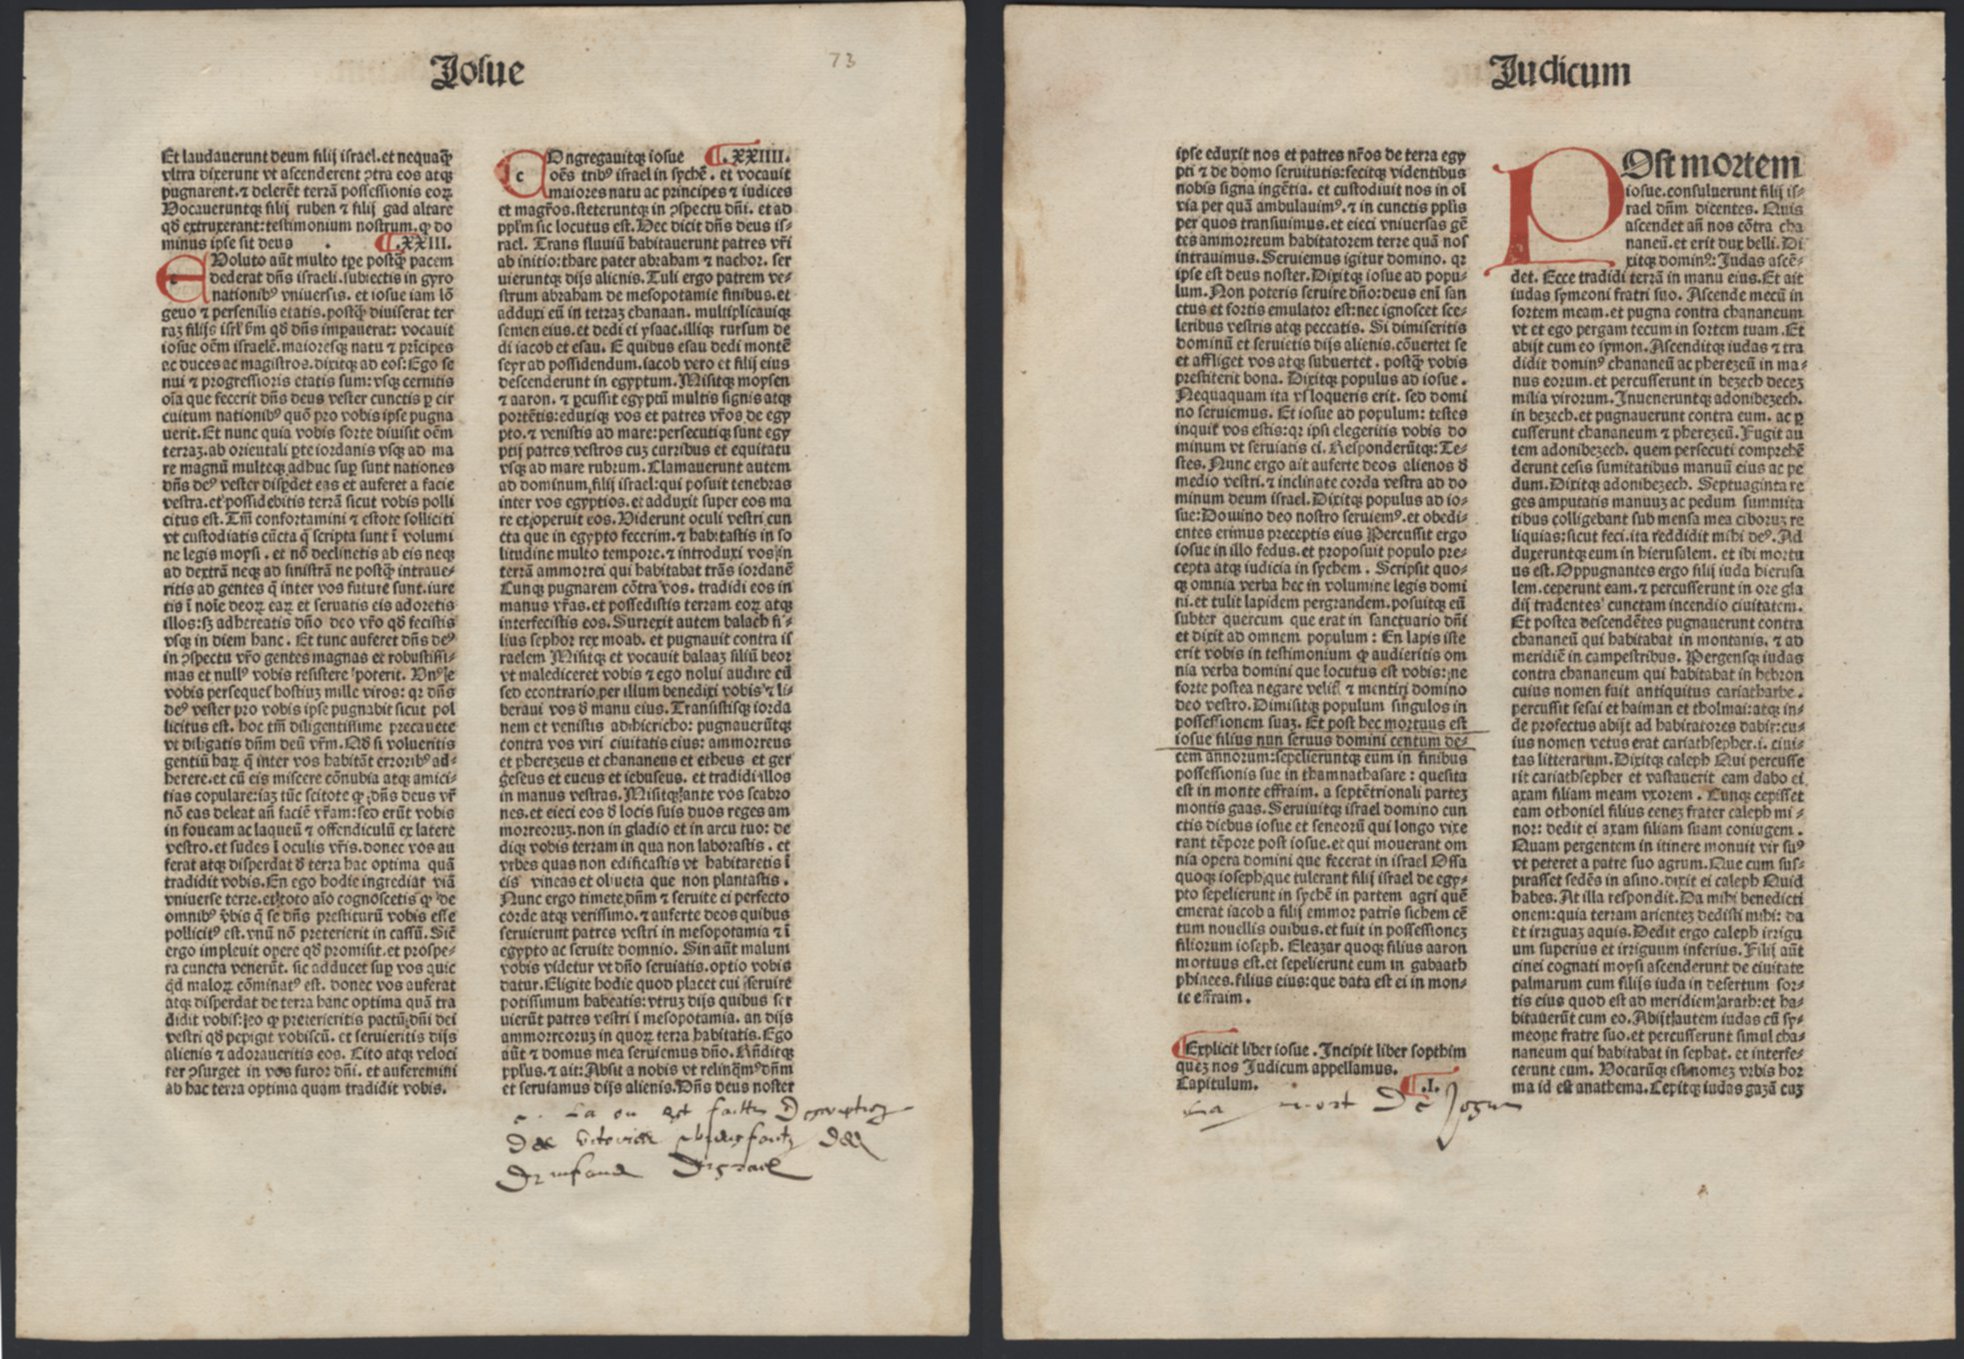 Iosue
73
Et laudauerunt deum filij israel.et nequaq̃
vltra dixerunt vt ascenderent ꝯtra eos atqꝫ
pugnarent.⁊ delerẽt terrã possessionis eoꝝ
Vocaueruntqꝫ filij ruben ⁊ filij gad altare
qð extruxerant:testimonium nostrum.ꝙ do
minus ipse sit deus . ¶.XXIII.
EVoluto aũt multo tp̃e postq̃ pacem
dederat dñs israeli.subiectis in gyro
nationibꝰ vniuersis. et iosue iam lõ
geuo ⁊ persenilis etatis.postq̃ diuiserat ter
raꝫ filijs isrl̓ oĩm qð dñs impauerat: vocauit
iosue oẽm israelẽ.maioresqꝫ natu ⁊ prĩcipes
ac duces ac magistros.dixitqꝫ ad eos:Ego se
nui ⁊ progressioris etatis sum:vsqꝫ cernitis
oĩa que fecerit dñs deus vester cunctis ꝑ cir
cuitum nationibꝰ quõ pro vobis ipse pugna
uerit.Et nunc quia vobis sorte diuisit oẽm
terraꝫ.ab orientali ꝑte iordanis vsqꝫ ad ma
re magnũ multeqꝫ adhuc suꝑ sunt nationes
dñs deꝰ vester disꝑdet eas et auferet a facie
vestra.et possidebitis terrã sicut vobis polli
citus est.Tm̃ confortamini ⁊ estote solliciti
vt custodiatis cũcta q̃ scripta sunt ĩ volumi
ne legis moysi . et nõ declinetis ab eis neqꝫ
ad dextrã neqꝫ ad sinistrã ne postq̃ intraue-
ritis ad gentes q̃ inter vos future sunt.iure
tis ĩ noĩe deoꝝ eaꝝ et seruatis eis adoretis
illos:sꝫ adhereatis dño deo vr̃o qð fecistis
vsqꝫ in diem hanc . Et tunc auferet dñs deꝰ
in ꝯspectu vr̃o gentes magnas et robustissi-
mas et nullꝰ vobis resistere poterit. Vnꝰ e
vobis persequet̃ hostiuꝫ mille viros: qꝛ dñs
deꝰ vester pro vobis ipse pugnabit sicut pol
licitus est. hoc tm̃ diligentissime precauete
vt diligatis dñm deũ vr̃m.Qð si volueritis
gentiũ haꝝ q̃ inter vos habitãt erroribꝰ ad-
herere.et cũ eis miscere cõnubia atqꝫ amici-
tias copulare:iaꝫ tũc scitote ꝙ dñs deus vr̃
nõ eas deleat añ faciẽ vr̃am:sed erũt vobis
in foueam ac laqueũ ⁊ offendiculũ ex latere
vestro.et sudes ĩ oculis vr̃is.donec vos au
ferat atqꝫ disperdat ð terra hac optima quã
tradidit vobis.En ego hodie ingrediar viã
vniuerse terre.et toto aĩo cognoscetis ꝙ de
omnibꝰ v̓bis q̃ se dñs prestiturũ vobis esse
pollicitꝰ est.vnũ nõ preterierit in cassũ.Sic̃
ergo impleuit opere qð promisit.et prospe-
ra cuncta venerũt. sic adducet suꝑ vos quic
q̃d maloꝝ cõminatꝰ est. donec vos auferat
atqꝫ disperdat de terra hanc optima quã tra
didit vobis:eo ꝙ preterieritis pactũ dñi dei
vestri qð pepigit vobiscũ. et seruieritis dijs
alienis ⁊ adoraueritis eos. Cito atqꝫ veloci
ter ꝯsurget in vos furor dñi. et auferemini
ab hac terra optima quam tradidit vobis.
COngregauitqꝫ iosue ¶.XXIIII.
oẽs tribꝰ israel in sychẽ . et vocauit
maiores natu ac principes ⁊ iudices
et magr̃os.steteruntqꝫ in ꝯspectu dñi. et ad
pplm̃ sic locutus est.Hec dicit dñs deus is-
rael. Trans fluuiũ habitauerunt patres vr̃i
ab initio:thare pater abraham ⁊ nachor. ser
uieruntqꝫ dijs alienis.Tuli ergo patrem ve-
strum abraham de mesopotamie finibus.et
adduxi eũ in terraꝫ chanaan. multiplicauiqꝫ
semen eius.et dedi ei ysaac.illiqꝫ rursum de
di iacob et esau. E quibus esau dedi montẽ
seyr ad possidendum.iacob vero et filij eius
descenderunt in egyptum.Misitqꝫ moysen
⁊ aaron. ⁊ ꝑcussit egyptũ multis signis atqꝫ
portẽtis:eduxiqꝫ vos et patres vr̃os de egy
pto.⁊ venistis ad mare:persecutiqꝫ sunt egy
ptij patres vestros cuꝫ curribus et equitatu
vsqꝫ ad mare rubrum.Clamauerunt autem
ad dominum filij israel:qui posuit tenebras
inter vos egyptios.et adduxit super eos ma
re et operuit eos.Viderunt oculi vestri cun
cta que in egypto fecerim.⁊ habitastis in so
litudine multo tempore.⁊ introduxi vos in
terrã ammorrei qui habitabat trãs iordanẽ
Cunqꝫ pugnarem cõtra vos. tradidi eos in
manus vr̃as.et possedistis terram eoꝝ atqꝫ
interfecistis eos.Surrexit autem balach fi-
lius sephor rex moab. et pugnauit contra is
raelem Misitqꝫ et vocauit balaaꝫ filiũ beor
vt malediceret vobis ⁊ ego nolui audire eũ
sed econtrario per illum benedixi vobis ⁊ li-
beraui vos ð manu eius.Transistisqꝫ iorda
nem et venistis ad hiericho: pugnauerũtqꝫ
contra vos viri ciuitatis eius: ammorreus
et pherezeus et chananeus et etheus et ger
geseus et eueus et iebuseus. et tradidi illos
in manus vestras.Misitqꝫ ante vos scabro
nes.et eieci eos ð locis suis duos reges am
morreoruꝫ.non in gladio et in arcu tuo: de
diqꝫ vobis terram in qua non laborastis . et
vrbes quas non edificastis vt habitaretis ĩ
eis vineas et oliueta que non plantastis .
Nunc ergo timete dñm ⁊ seruite ei perfecto
corde atqꝫ verissimo.⁊ auferte deos quibus
seruierunt patres vestri in mesopotamia ⁊ ĩ
egypto ac seruite domnio. Sin aũt malum
vobis videtur vt dño seruiatis.optio vobis
datur.Eligite hodie quod placet cui seruire
potissimum habeatis:vtruꝫ dijs quibus ser
uierũt patres vestri ĩ mesopotamia. an dijs
ammorreoruꝫ in quoꝝ terra habitatis.Ego
aũt ⁊ domus mea seruiemus dño.Rñditqꝫ
pplũs.⁊ ait:Absit a nobis vt relinq̃mꝰ dñm
et seruiamus dijs alienis.Dñs deus noster
Judicum
ipse eduxit nos et patres nr̃os de terra egy
pti ⁊ de domo seruitutis:fecitqꝫ videntibus
nobis signa ingẽtia. et custodiuit nos in ol
via per quã ambulauimꝰ.⁊ in cunctis pplĩs
per quos transiuimus.et eieci vniuersas gẽ
tes ammorreum habitatorem terre quã nos
intrauimus. Seruiemus igitur domino. qꝛ
ipse est deus noster.Dixitqꝫ iosue ad popu-
lum.Non poteris seruire dño:deus enĩ san
ctus et fortis emulator est:nec ignoscet sce-
leribus vestris atqꝫ peccatis. Si dimiseritis
dominũ et seruietis dijs alienis.cõuertet se
et affliget vos atqꝫ subuertet . postq̃ vobis
prestiterit bona. Dixitqꝫ populus ad iosue .
Nequaquam ita vt loqueris erit. sed domi
no seruiemus. Et iosue ad populum: testes
inquit vos estis:qꝛ ipsi elegeritis vobis do
minum vt seruiatis ei. Responderũtqꝫ:Te-
stes. Nunc ergo ait auferte deos alienos ð
medio vestri.⁊ inclinate corda vestra ad do
minum deum israel.Dixitqꝫ populus ad io-
sue:Domino deo nostro seruiemꝰ.et obedi-
entes erimus preceptis eius Percussit ergo
iosue in illo fedus.et proposuit populo pre-
cepta atqꝫ iudicia in sychem . Scripsit quo-
qꝫ omnia verba hec in volumine legis domi
ni.et tulit lapidem pergrandem.posuitqꝫ eũ
subter quercum que erat in sanctuario dñi
et dixit ad omnem populum : En lapis iste
erit vobis in testimonium ꝙ audieritis om
nia verba domini que locutus est vobis: ne
forte postea negare velit̃ ⁊ mentiri domino
deo vestro.Dimisitqꝫ populum singulos in
possessionem suaꝫ. Et post hec mortuus est
iosue filius nun seruus domini centum de-
cem annorum:sepelieruntqꝫ eum in finibus
possessionis sue in thamnathasare : quesita
est in monte effraim. a septẽtrionali parteꝫ
montis gaas. Seruiuitqꝫ israel domino cun
ctis diebus iosue et seneorũ qui longo vixe
rant tẽpore post iosue.et qui mouerant om
nia opera domini que fecerat in israel Ossa
quoqꝫ ioseph que tulerant filij israel de egy-
pto sepelierunt in sychẽ in partem agri quẽ
emerat iacob a filij emmor patris sichem cẽ
tum nouellis ouibus.et fuit in possessioneꝫ
filiorum ioseph. Eleazar quoqꝫ filius aaron
mortuus est.et sepelierunt eum in gabaath
phinees.filius eius:que data est ei in mon-
te effraim .
¶Explicit liber iosue . Incipit liber sopthim
queꝫ nos Judicum appellamus.
Capitulum. ¶.I.
mort De Josue
POst mortem
iosue.consuluerunt filij is-
rael dñm dicentes. Quis
ascendet añ nos cõtra cha
naneũ.et erit dux belli. Di
xitqꝫ dominꝰ: Judas ascẽ-
det. Ecce tradidi terrã in manu eius.Et ait
iudas symeoni fratri suo. Ascende mecũ in
sortem meam.et pugna contra chananeum
vt et ego pergam tecum in sortem tuam .Et
abijt cum eo symon.Ascenditqꝫ iudas ⁊ tra
didit dominꝰ chananeũ ac pherezeũ in ma-
nus eorum.et percusserunt in bezech deceꝫ
milia virorum.Inueneruntqꝫ adonibezech.
in bezech.et pugnauerunt contra eum. ac ꝑ
cusserunt chananeum ⁊ pherezeũ.Fugit au
tem adonibezech. quem persecuti comprehẽ
derunt cesis sumitatibus manuũ eius ac pe
dum.Dixitqꝫ adonibezech. Septuaginta re
ges amputatis manuuꝫ ac pedum summita
tibus colligebant sub mensa mea ciboruꝫ re
liquias:sicut feci.ita reddidit mihi deꝰ.Ad
duxeruntqꝫ eum in hierusalem. et ibi mortu
us est.Oppugnantes ergo filij iuda hierusa
lem.ceperunt eam.⁊ percusserunt in ore gla
dij tradentes cunctam incendio ciuitatem.
Et postea descendẽtes pugnauerunt contra
chananeũ qui habitabat in montanis. ⁊ ad
meridiẽ in campestribus. Pergensqꝫ iudas
contra chananeum qui habitabat in hebron
cuius nomen fuit antiquitus cariatharbe .
percussit sesai et haiman et tholmai:atqꝫ in-
de profectus abijt ad habitatores dabir:cu-
ius nomen vetus erat cariathsepher.i. ciui-
tas litterarum.Dixitqꝫ caleph Qui percusse
rit cariathsepher et vastauerit eam dabo ei
axam filiam meam vxorem . Cunqꝫ cepisset
eam othoniel filius ceneꝫ frater caleph mi -
nor: dedit ei axam filiam suam coniugem .
Quam pergentem in itinere monuit vir suꝰ
vt peteret a patre suo agrum.Que cum sus-
pirasset sedẽs in asino.dixit ei caleph Quid
habes.At illa respondit.Da mihi benedicti
onem:quia terram arienteꝫ dedisti mihi: da
et irriguaꝫ aquis.Dedit ergo caleph irrigu
um superius et irriguum inferius.Filij aũt
cinei cognati moysi ascenderunt de ciuitate
palmarum cum filijs iuda in desertum sor-
tis eius quod est ad meridiem arath:et ha-
bitauerũt cum eo.Abijt autem iudas cũ sy-
meone fratre suo.et percusserunt simul cha-
naneum qui habitabat in sephat. et interfe-
cerunt eum. Vocarũqꝫ est nomeꝫ vrbis hor
ma id est anathema.Cepitqꝫ iudas gazã cuꝫ